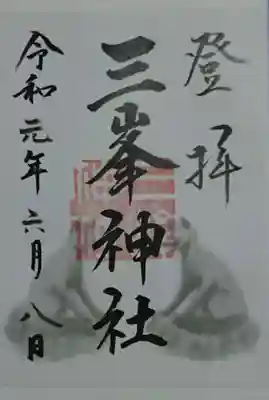 登拝
三峯神社
令和元年六月八日